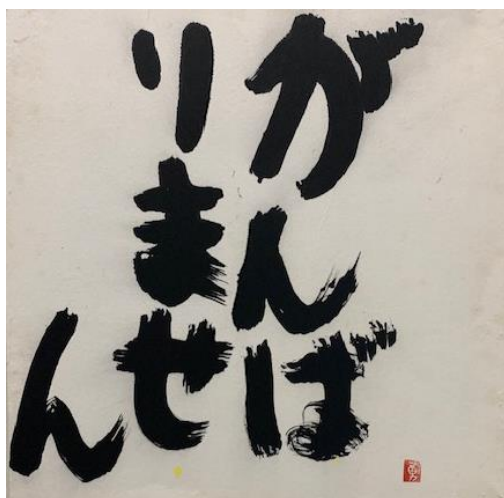 がんば
りませ
ん